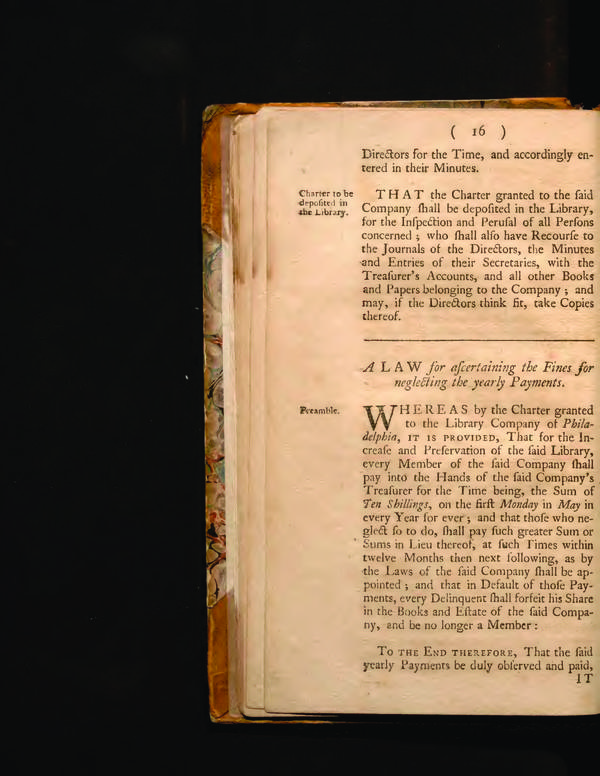 ( 16 )
Directors for the Time, and accordingly en-
tered in their Minutes.
Charter to be
depoſited in
the Library.
THAT the Charter granted to the ſaid
Company ſhall be depoſited in the Library,
for the Inſpection and Peruſal of all Perſons
concerned ; who ſhall alſo have Recourſe to
the Journals of the Directors, the Minutes
and Entries of their Secretaries, with the
Treaſurer's Accounts, and all other Books
and Papers belonging to the Company ; and
may, if the Directors think fit, take Copies
thereof.
A LAW for aſcertaining the Fines for
neglecting the yearly Payments.
Preamble.
WHEREAS by the Charter granted
to the Library Company of Phila-
delphia, IT IS PROVIDED, That for the In-
creaſe and Preſervation of the ſaid Library,
every Member of the ſaid Company ſhall
pay into the Hands of the ſaid Company's
Treaſurer for the Time being, the Sum of
Ten Shillings, on the firſt Monday in May in
every Year for ever ; and that thoſe who ne-
glect ſo to do, ſhall pay ſuch greater Sum or
Sums in Lieu thereof, at ſuch Times within
twelve Months then next following, as by
the Laws of the ſaid Company ſhall be ap-
pointed ; and that in Default of thoſe Pay-
ments, every Delinquent ſhall forfeit his Share
in the Books and Eſtate of the ſaid Compa-
ny, and be no longer a Member :
TO THE END THEREFORE, That the ſaid
yearly Payments be duly obſerved and paid,
IT